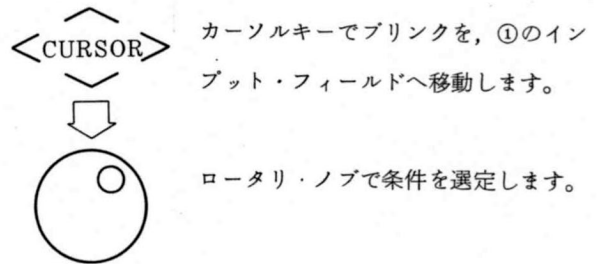 CURSOR
カーソルキーでブリンクを，①のイン
プット・フィールドへ移動します。
ロータリ・ノブで条件を選定します。